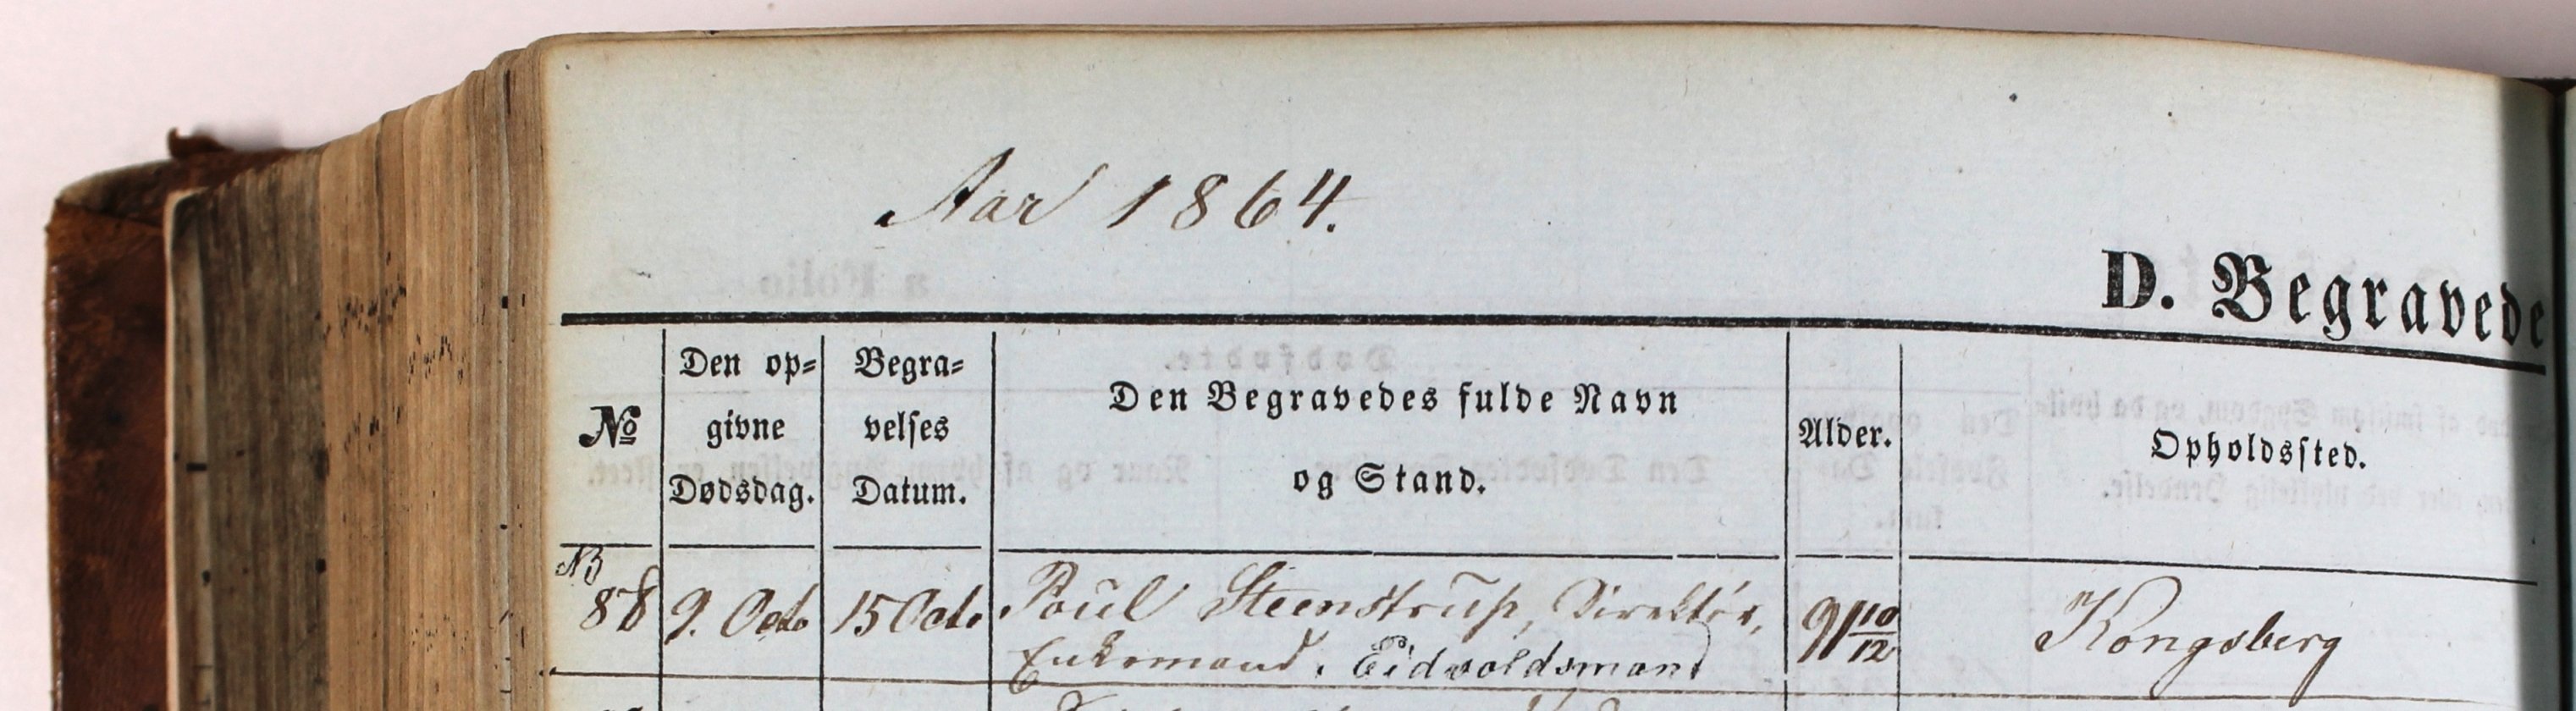 Aar 1864.
D. Begravede
No
Den op-
givne
Dødsdag.
Begra-
velses
Datum.
Den Begravedes fulde Navn
og Stand.
Alder.
Opholdssted.
NB
88
9. Octo
15 Octo
Poul Steenstrup, Direktør,
Enkemand. Eidsvoldsmand
91 10/12
Kongsberg